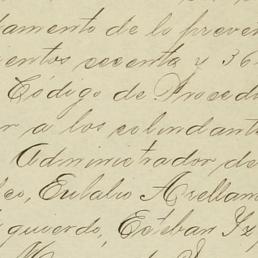 tamento de lo preven
ientos secenta y 36
Código de Procedi
r a los colindant
Administrador de
eo, Eulalio Arellan
quierdo, Esteban Iz